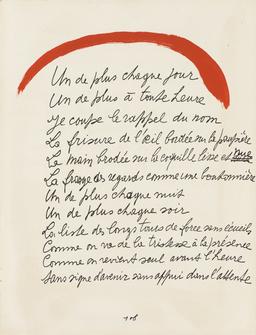 Un de plus chaque jour
Un de plus à toute heure
Je coupe le rappel du nom
La frisure de l'œil bordée sur la paupière
La main brodée sur la coquille lisse et nue
La frange des regards comme une boutonnière
Un de plus chaque nuit
Un de plus chaque soir
La liste des longs tours de force sans écueils
Comme on va de la tristesse à la présence
Comme on revient seul avant l'heure
Sans signe d'avenir sans appui dans l'attente
106